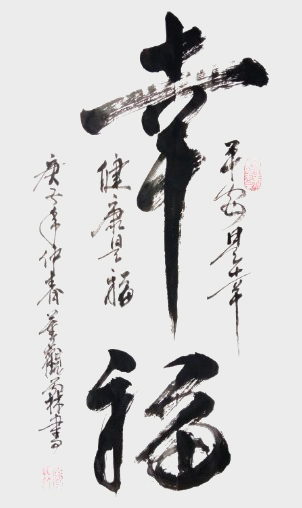 幸福
平安是幸
健康是福
庚子年仲春觀書